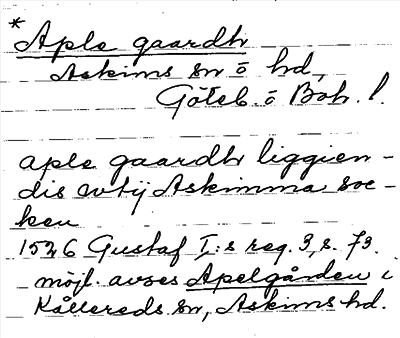 * Aple gaardh
Askims sn o hd,
Göteb. o Boh. l.
aple gaardh liggien-
dis wtij Askimma soc-
ken
1526 Gustaf I:s reg. 3, s. 73.
möjl. avses Apelgården i
Kållereds sn, Askims hd.